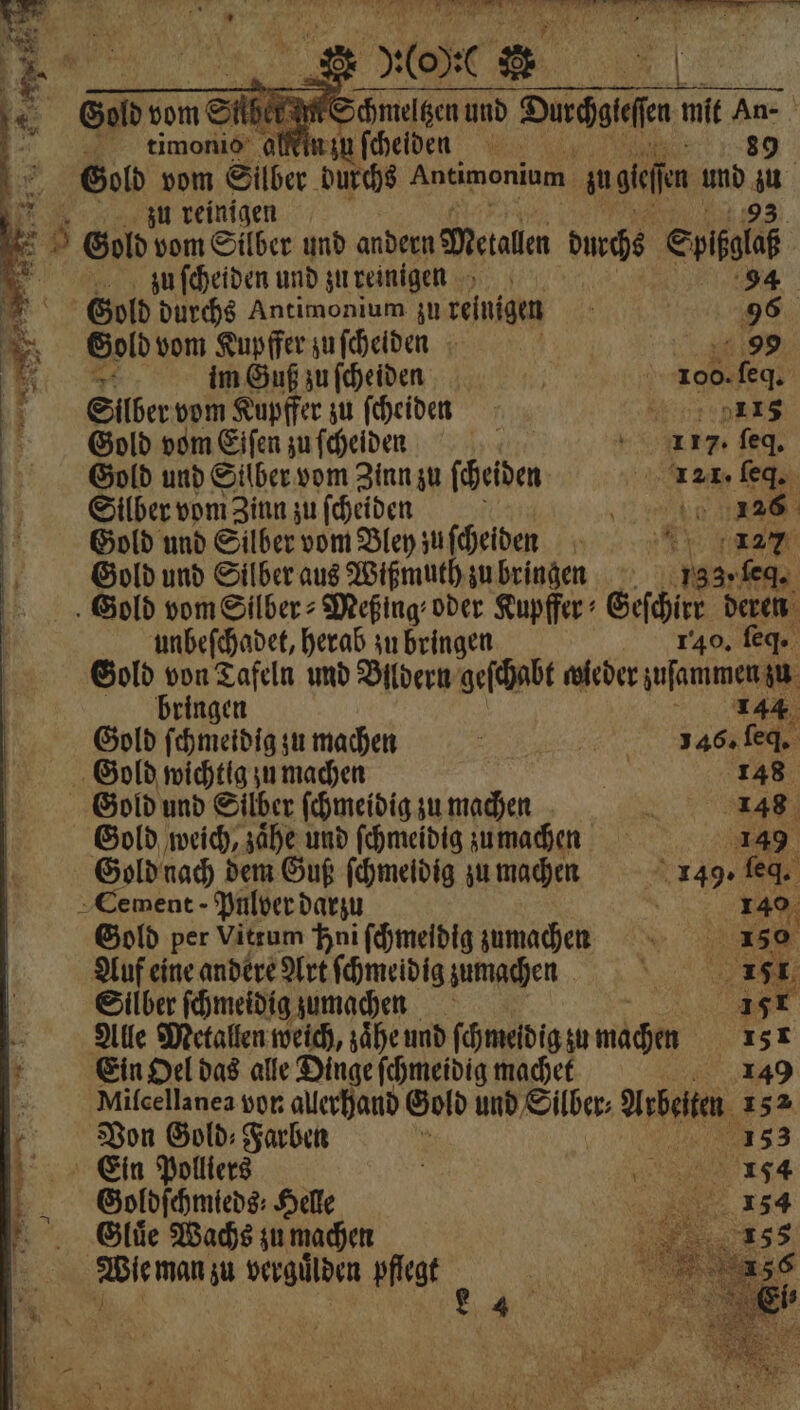 ):(o):(
Gold vom Silber im Schmeltzen und Durchgiessen mit An-
timonio allein zu scheiden 89
Gold vom Silber durchs Antimonium zu giessen und zu
zu reinigen 93
Gold vom Silber und andern Metallen durchs Spißglaß
zu scheiden und zu reinigen 94
Gold durchs Antimonium zu reinigen 96
Gold vom Kupffer zu scheiden 99
im Guß zu scheiden 100. seq.
Silber vom Kupffer zu scheiden 115
Gold vom Eisen zu scheiden 117. seq.
Gold und Silber vom Zinn zu scheiden 121. seq.
Silber vom Zinn zu scheiden 126
Gold und Silber vom Bley zu scheiden 127
Gold und Silber aus Wißmuth zu bringen 133. seq.
Gold vom Silber- Meßing- oder Kupffer- Geschirr deren
unbeschadet, herab zu bringen 140. seq.
Gold von Tafeln und Bildern geschabt wieder zusammen zu
bringen 144
Gold schmeidig zu machen 146. seq.
Gold wichtig zu machen 148
Gold und Silber schmeidig zu machen 148
Gold weich, zåhe und schmeidig zu machen 149
Gold nach dem Guß schmeidig zu machen 149. seq.
Cement-Pulver darzu 140
Gold per Vitrum Hni schmeidig zumachen 150
Auf eine andere Art schmeidig zumachen 151
Silber schmeidig zumachen 151
Alle Metallen weich, zåhe und schmeidig zu machen 151
Ein Oel das alle Dinge schmeidig machet 149
Miscellanea von allerhand Gold und Silber- Arbeiten 152
Von Gold-Farben 153
Ein Polliers 154
Goldschmieds-Helle 154
Glůe Wachs zu machen 155
Wie man zu vergůlden pflegt 156
L 4
Ei-